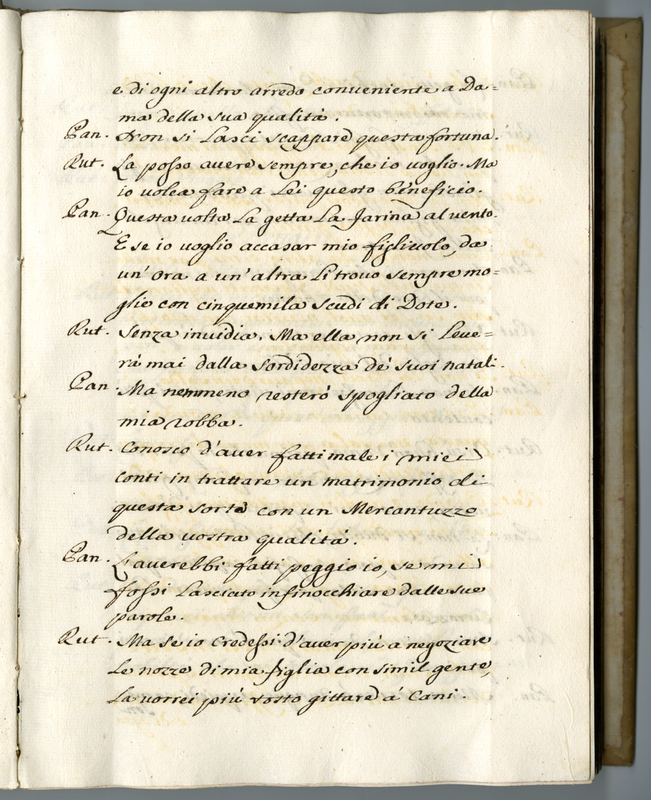 e di ogni altro arredo conveniente a Da=
ma della sua qualità.
Pan. Non si lasci scappare questa fortuna.
Rut. La posso avere sempre, che io voglio. Ma
io volea fare a Lei questo beneficio.
Pan. Questa volta La getta La farina al vento.
E se io voglio accasar mio figlivolo, da
un' ora a un' altra Li trovo sempre mo=
glie con cinquemila scudi di Dote.
Rut. Senza invidia. Ma ella non si Leve=
rà mai dalla sordidezza de' suoi natali.
Pan. Ma nemmeno resterò spogliato della
mia robba.
Rut. Conosco d'aver fatti male i miei
conti in trattare un matrimonio di
questa sorte con un Mercantuzzo
della vostra qualità.
Pan. L'averebbi fatti peggio io, se mi
fossi Lasciato infinocchiare dalle sue
parole.
Rut. Ma se io credessi d'aver più a negoziare
Le nozze di mia figlia con simil gente,
La vorrei più tosto gittare a' Cani.